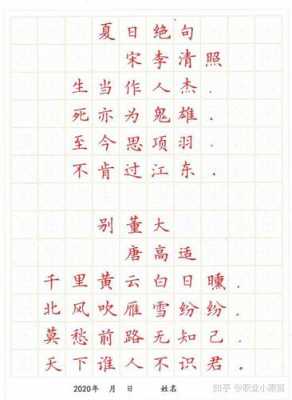 夏日绝句
宋李清照
生当作人杰.
死亦为鬼雄.
至今思项羽.
不肯过江东.
别董大
唐高适
千里黄云白日曛.
北风吹雁雪纷纷.
莫愁前路无知己.
天下谁人不识君.
2020年 月 日 姓名
知乎 @职业小源留